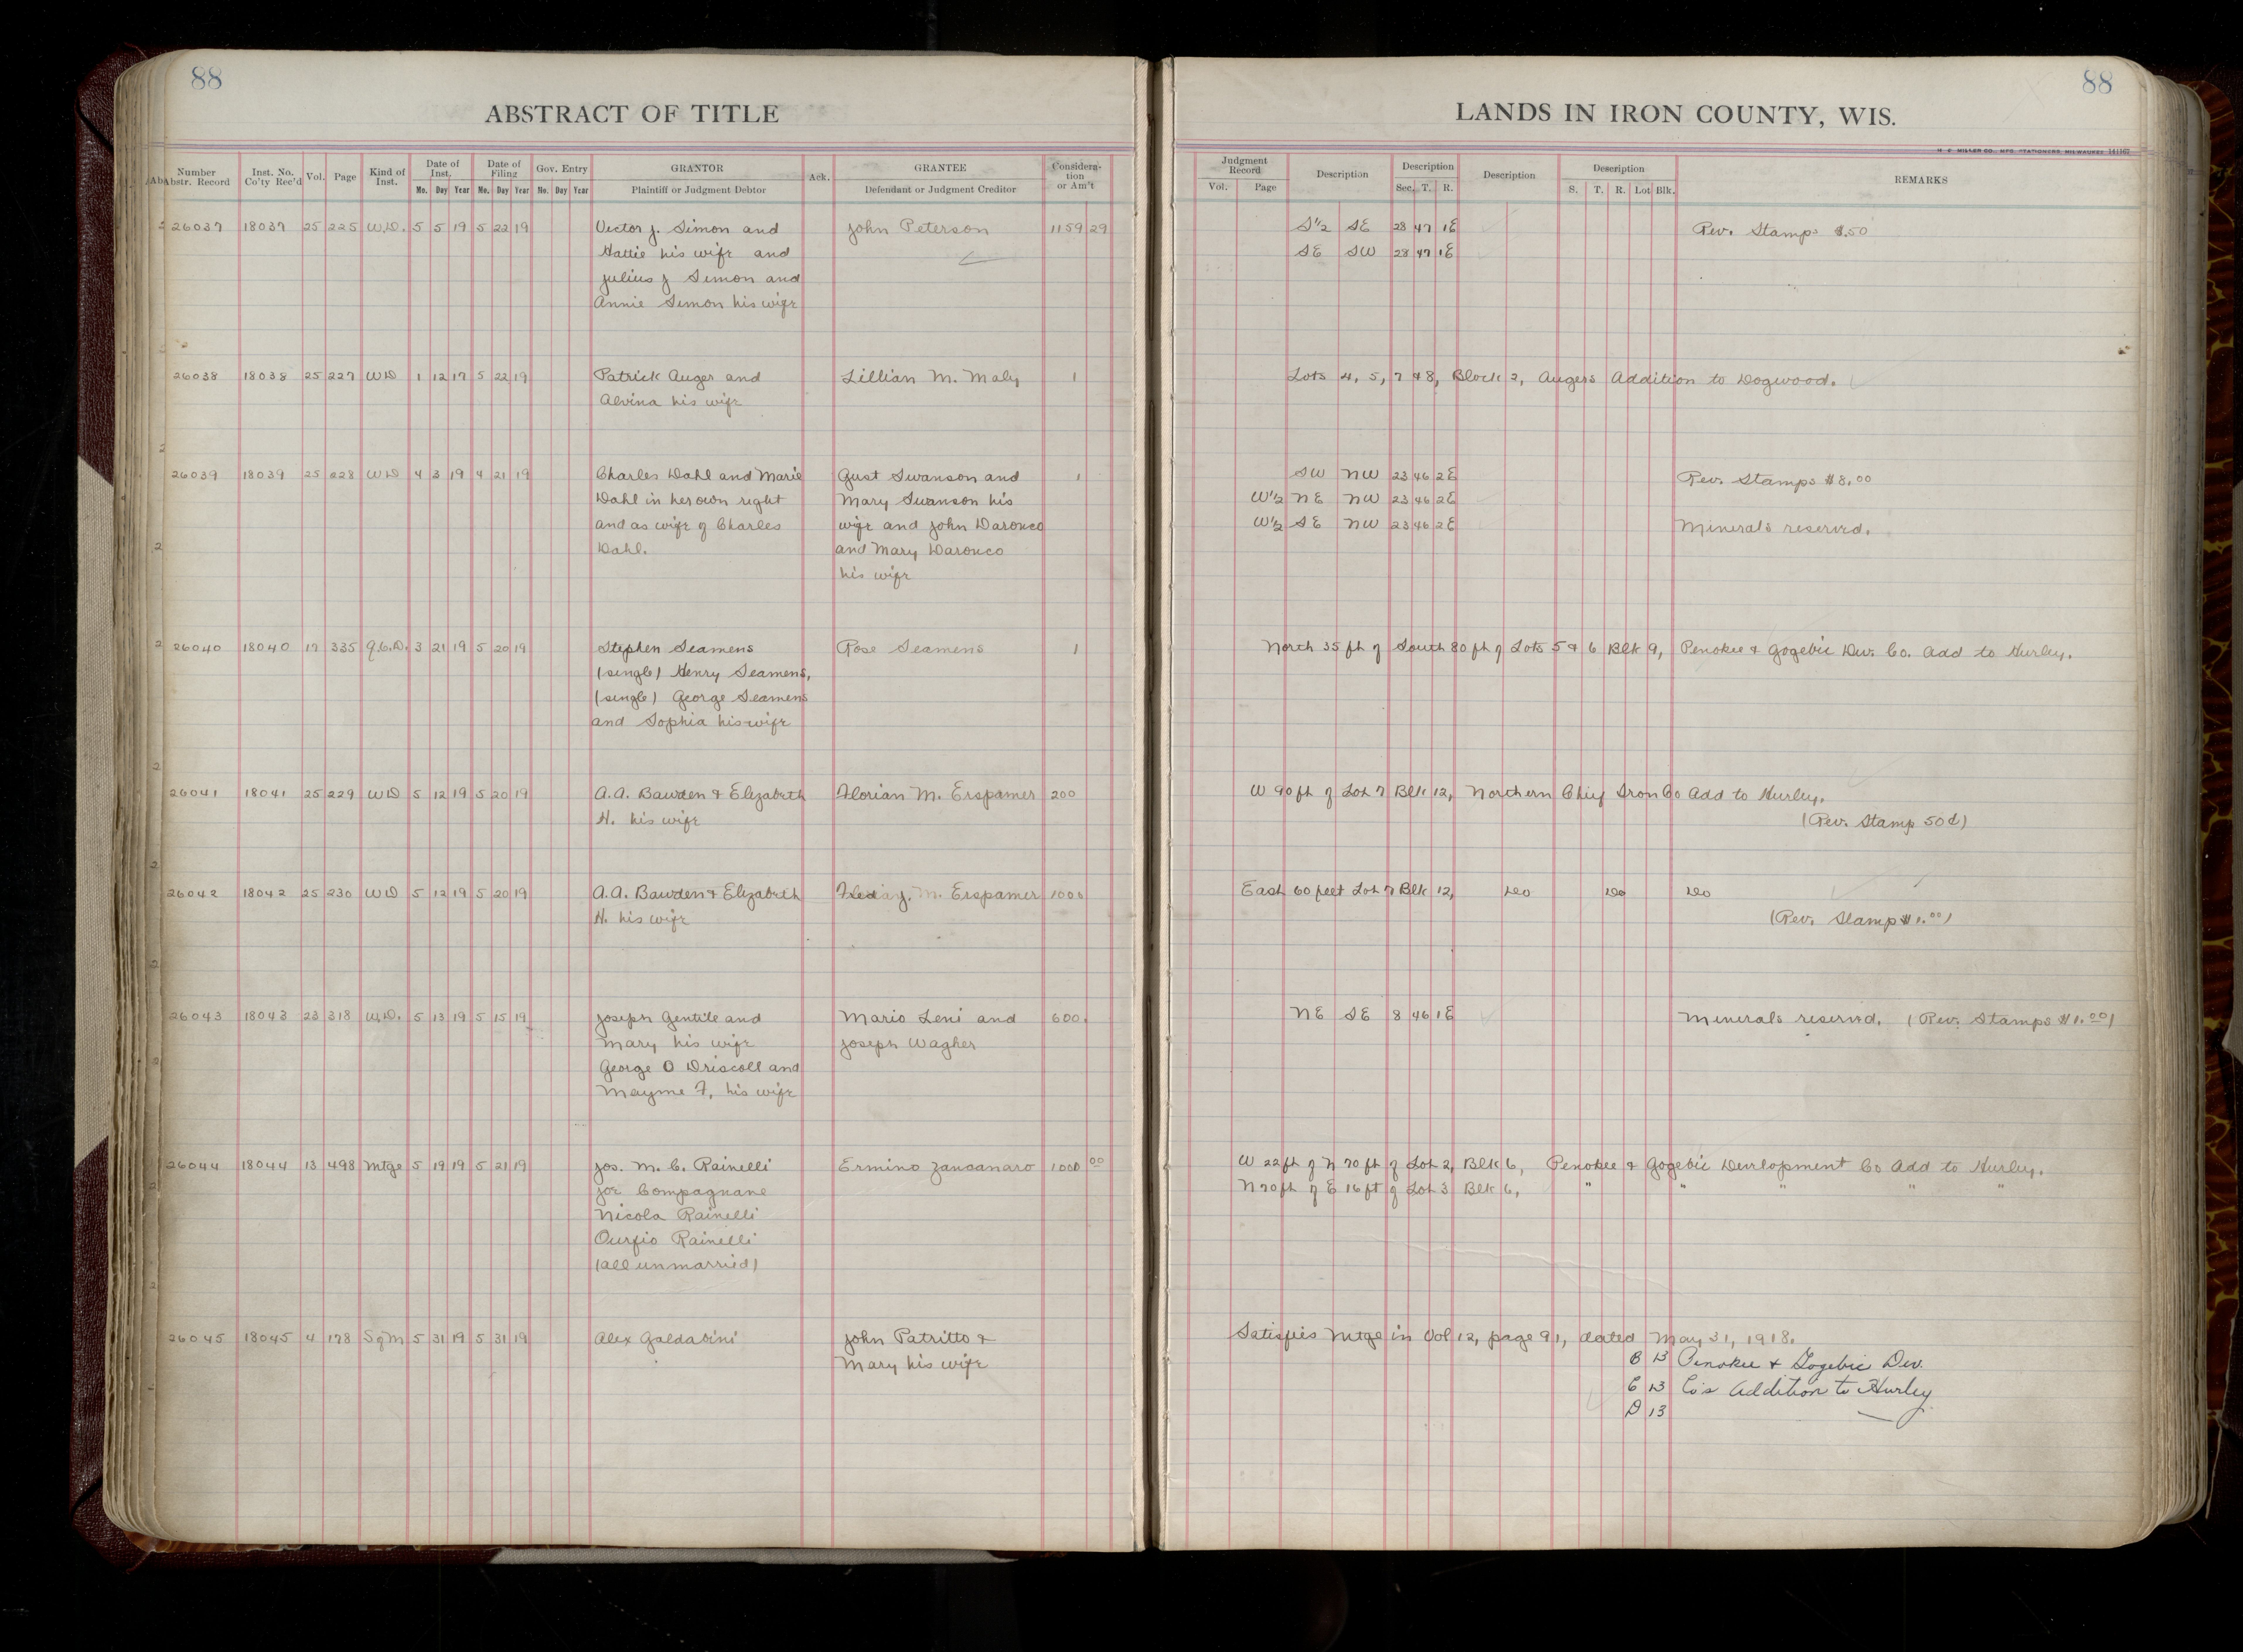 88
88
ABSTRACT OF TITLE
LANDS IN IRON COUNTY, WIS.
H. C. MILLER CO., MFG. STATIONERS, MILWAUKEE 141167
Number Abstr. Record
Inst. No. Co'ty Rec'd
Vol.
Page
Kind of Inst.
Date of Inst.
Mo. Day Year
Date of Filing
Mo. Day Year
Gov. Entry
Mo. Day Year
GRANTOR
Plaintiff or Judgment Debtor
Ack.
GRANTEE
Defendant or Judgment Creditor
Considera-tion or Am't
Judgment Record
Vol. Page
Description
Description
Sec. T. R.
Description
Description
S. T. R. Lot Blk.
REMARKS
26037 18037 25 225 W.D. 5 5 19 5 22 19 Victor J. Simon and John Peterson 1159 29 S½ SE 28 47 1E Rev. Stamps $.50
Hattie his wife and SE SW 28 47 1E
Julius J Simon and
Annie Simon his wife
26038 18038 25 227 WD 1 12 17 5 22 19 Patrick Auger and Lillian M. Maly 1 Lots 4, 5, 7 & 8, Block 2, Augers Addition to Dogwood.
Alvina his wife
26039 18039 25 228 WD 4 3 19 4 21 19 Charles Dahl and Marie Gust Swanson and 1 SW NW 23 46 2E Rev. Stamps $8.00
Dahl in her own right Mary Swanson his W½ NE NW 23 46 2E
and as wife of Charles wife and John Daronco W½ SE NW 23 46 2E Minerals reserved.
Dahl. and Mary Daronco
his wife
26040 18040 17 335 Q.C.D. 3 21 19 5 20 19 Stephen Seamens Rose Seamens 1 North 35 ft of South 80 ft of Lots 5 & 6 Blk 9, Penokee & Gogebic Dev. Co. Add to Hurley.
(single) Henry Seamens,
(single) George Seamens
and Sophia his wife
26041 18041 25 229 WD 5 12 19 5 20 19 A.A. Bawden & Elizabeth Florian M. Erspamer 200 W 90 ft of Lot 7 Blk 12, Northern Chief Iron Co Add to Hurley.
H. his wife (Rev. Stamp 50¢)
26042 18042 25 230 WD 5 12 19 5 20 19 A.A. Bawden & Elizabeth M. Erspamer 1000 East 60 feet Lot 7 Blk 12, Do Do Do
H. his wife (Rev. Stamp $1.00)
26043 18043 23 318 W.D. 5 13 19 5 15 19 Joseph Gentile and Mario Leni and 600. NE SE 8 46 1E Minerals reserved. (Rev. Stamps $1.00)
Mary his wife Joseph Wagher
George O Driscoll and
Mayme F. his wife
26044 18044 13 498 Mtge 5 19 19 5 21 19 Jos. M. C. Rainelli Ermino Zancanaro 1000 00 W 22 ft of N 70 ft of Lot 2, Blk 6, Penokee & Gogebic Development Co Add to Hurley.
Joe Compagnane N 70 ft of E 16 ft of Lot 3 Blk 6, " " " " "
Nicola Rainelli
Ourfio Rainelli
(all unmarried)
26045 18045 4 178 S of M 5 31 19 5 31 19 Alex Galdabini John Patritto & Satisfies Mtge in Vol 12, page 91, dated May 31, 1918.
Mary his wife B 13 Penokee & Gogebic Dev.
C 13 Co's Addition to Hurley
D 13